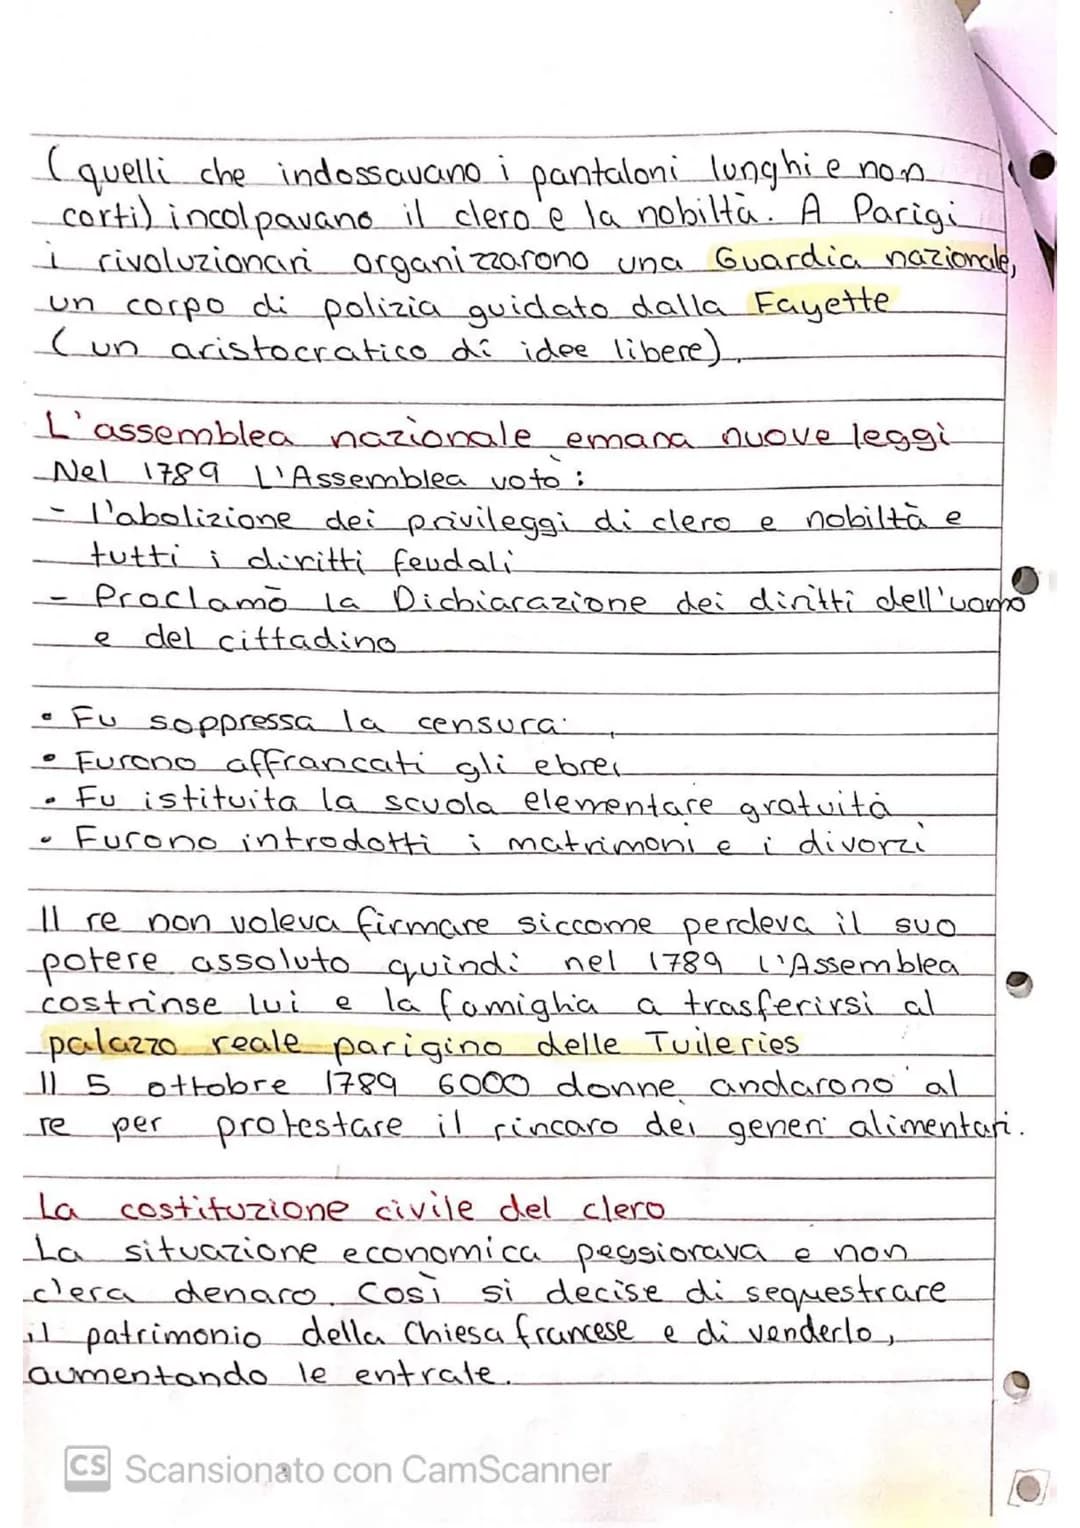 (quelli che indossavano i pantaloni lunghi e non
corti) incolpavano il clero e la nobiltà. A Parigi
i rivoluzionari organizzarono una Guardia nazionale,
un corpo di polizia guidato dalla Fayette
(un aristocratico di idee libere).
L'assemblea nazionale emana nuove leggi
Nel 1789 L'Assemblea votò:
- l'abolizione dei privileggi di clero e nobiltà e
tutti i diritti feudali
- Proclamò la Dichiarazione dei diritti dell'uomo
e del cittadino
• Fu soppressa la censura
• Furono affrancati gli ebrei
• Fu istituita la scuola elementare gratuita
• Furono introdotti i matrimoni e i divorzi
Il re non voleva firmare siccome perdeva il suo
potere assoluto quindi nel 1789 l'Assemblea
costrinse lui e la famiglia a trasferirsi al
palazzo reale parigino delle Tuileries
Il 5 ottobre 1789 6000 donne andarono al
re per protestare il rincaro dei generi alimentari.
La costituzione civile del clero
La situazione economica peggiorava e non
c'era denaro. Così si decise di sequestrare
il patrimonio della Chiesa francese e di venderlo,
aumentando le entrate.
CS Scansionato con CamScanner